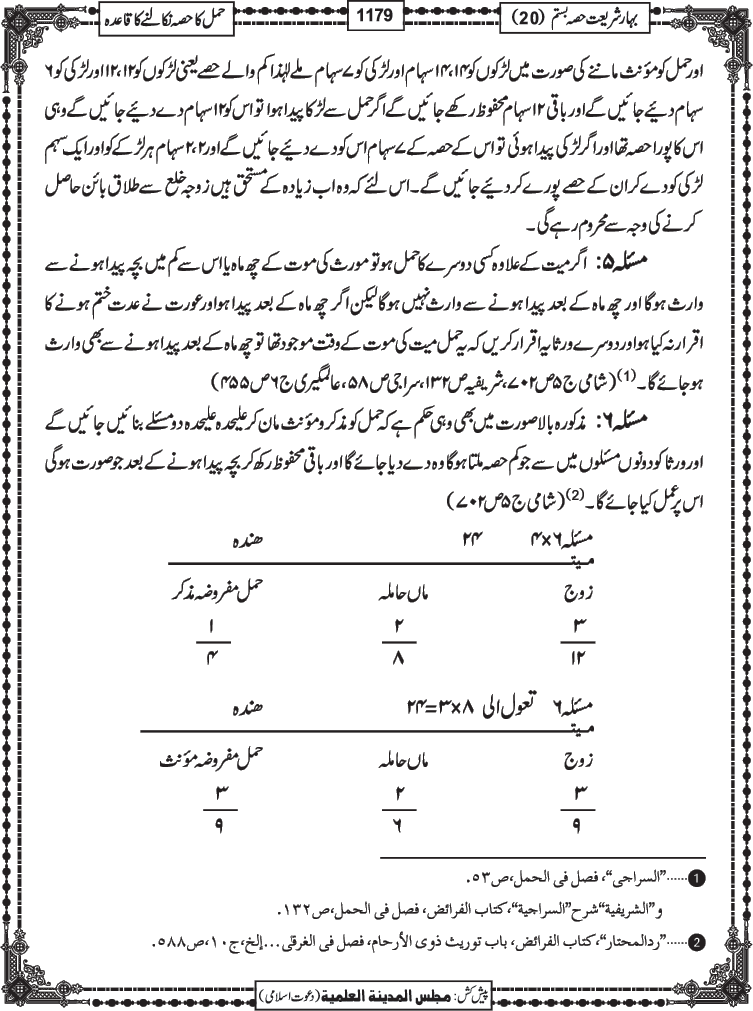 بہار شریعت حصہ بستم (20)
1179
حمل کا حصہ نکالنے کا قاعدہ
اور حمل کو مؤنث ماننے کی صورت میں لڑکوں کو ۱۴،۱۴ سہام اور لڑکی کو ۷ سہام ملے لہٰذا کم والے حصے یعنی لڑکوں کو ۱۲،۱۲ اور لڑکی کو ۶
سہام دئیے جائیں گے اور باقی ۱۲ سہام محفوظ رکھے جائیں گے اگر حمل سے لڑکا پیدا ہوا تو اس کو ۱۲ سہام دے دئیے جائیں گے وہی
اس کا پورا حصہ تھا اور اگر لڑکی پیدا ہوئی تو اس کے حصہ کے ۷ سہام اس کو دے دئیے جائیں گے اور ۲،۲ سہام ہر لڑکے کو اور ایک سہم
لڑکی کو دے کر ان کے حصے پورے کر دئیے جائیں گے۔ اس لئے کہ وہ اب زیادہ کے مستحق ہیں زوجہ خلع سے طلاق بائن حاصل
کرنے کی وجہ سے محروم رہے گی۔
مسئلہ ۵: اگر میت کے علاوہ کسی دوسرے کا حمل ہو تو مورث کی موت کے چھ ماہ یا اس سے کم میں بچہ پیدا ہونے سے
وارث ہوگا اور چھ ماہ کے بعد پیدا ہونے سے وارث نہیں ہوگا لیکن اگر چھ ماہ کے بعد پیدا ہوا اور عورت نے عدت ختم ہونے کا
اقرار نہ کیا ہو اور دوسرے ورثا یہ اقرار کریں کہ یہ حمل میت کی موت کے وقت موجود تھا تو چھ ماہ کے بعد پیدا ہونے سے بھی وارث
ہو جائے گا۔(1) (شامی ج۵ ص۷۰۲، شریفیہ ص۱۳۲، سراجی ص۵۸، عالمگیری ج۶ ص۴۵۵)
مسئلہ ۶: مذکورہ بالا صورت میں بھی وہی حکم ہے کہ حمل کو مذکر و مؤنث مان کر علیحدہ علیحدہ دو مسئلے بنائیں جائیں گے
اور ورثا کو دونوں مسئلوں میں سے جو کم حصہ ملتا ہوگا وہ دے دیا جائے گا اور باقی محفوظ رکھ کر بچہ پیدا ہونے کے بعد جو صورت ہوگی
اس پر عمل کیا جائے گا۔(2) (شامی ج۵ ص۷۰۲)
مسئلہ ۶×۴ ۲۴ ھندہ
میتـ
زوج ماں حاملہ حمل مفروضہ مذکر
۳ ۲ ۱
۱۲ ۸ ۴
مسئلہ ۶ تعول الی ۸×۳=۲۴ ھندہ
میتـ
زوج ماں حاملہ حمل مفروضہ مؤنث
۳ ۲ ۳
۹ ۶ ۹
1 ......"السراجی"، فصل فی الحمل، ص۵۳.
و"الشریفیة" شرح "السراجیة"، کتاب الفرائض، فصل فی الحمل، ص۱۳۲.
2 ......"ردالمحتار"، کتاب الفرائض، باب توریث ذوی الأرحام، فصل فی الغرقی...إلخ، ج۱۰، ص۵۸۸.
پیش کش: مجلس المدینة العلمیة (دعوت اسلامی)